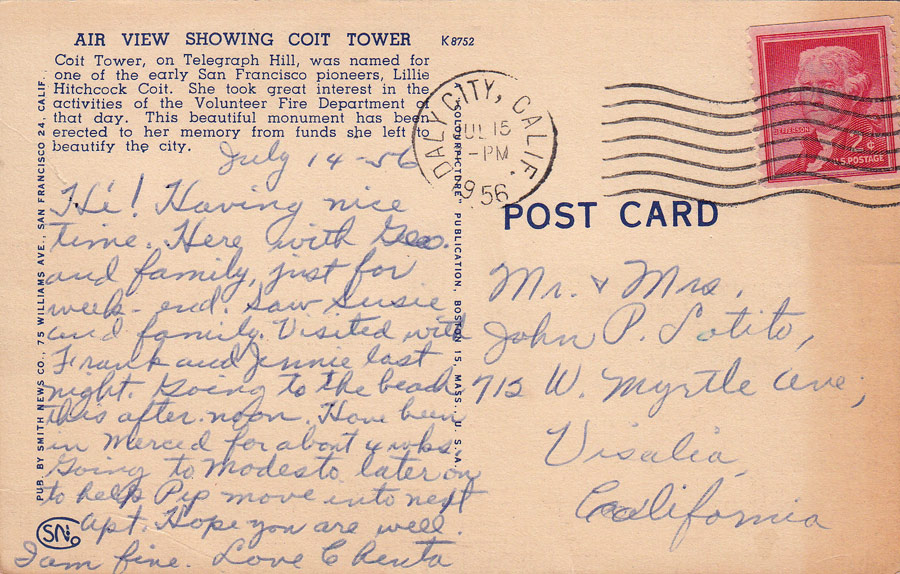 AIR VIEW SHOWING COIT TOWER K8752
Coit Tower, on Telegraph Hill, was named for
one of the early San Francisco pioneers, Lillie
Hitchcock Coit. She took great interest in the
activities of the Volunteer Fire Department of
that day. This beautiful monument has been
erected to her memory from funds she left to
beautify the city.
July 14-56
Hi! Having nice
time. Here with Geo.
and family, just for
week-end. Saw Susie
and family. Visited with
Frank and Jennie last
night. Going to the beach
this after noon. Have been
in Merced for about 4 wks.
Going to Modesto later on
to help Pip move into next
apt. Hope you are well.
I am fine. Love
PUB. BY SMITH NEWS CO., 75 WILLIAMS AVE., SAN FRANCISCO 24, CALIF.
"COLOURPICTURE" PUBLICATION, BOSTON 15, MASS., U. S. A.
SN
DALY CITY, CALIF.
JUL 15
-PM
1956
JEFFERSON
2¢
U.S. POSTAGE
POST CARD
Mr. & Mrs.
John P. Lotito,
713 W. Myrtle Ave;
Visalia,
California